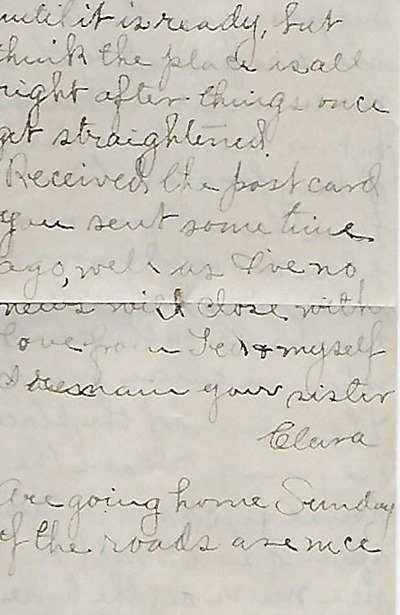 until it is ready, but
think the place is all
right after things once
get straightened.
Received the post card
you sent some time
ago, well as I've no
news will close with
love from Ted & myself
I remain your sister
Clara
Are going home Sunday
if the roads are nice